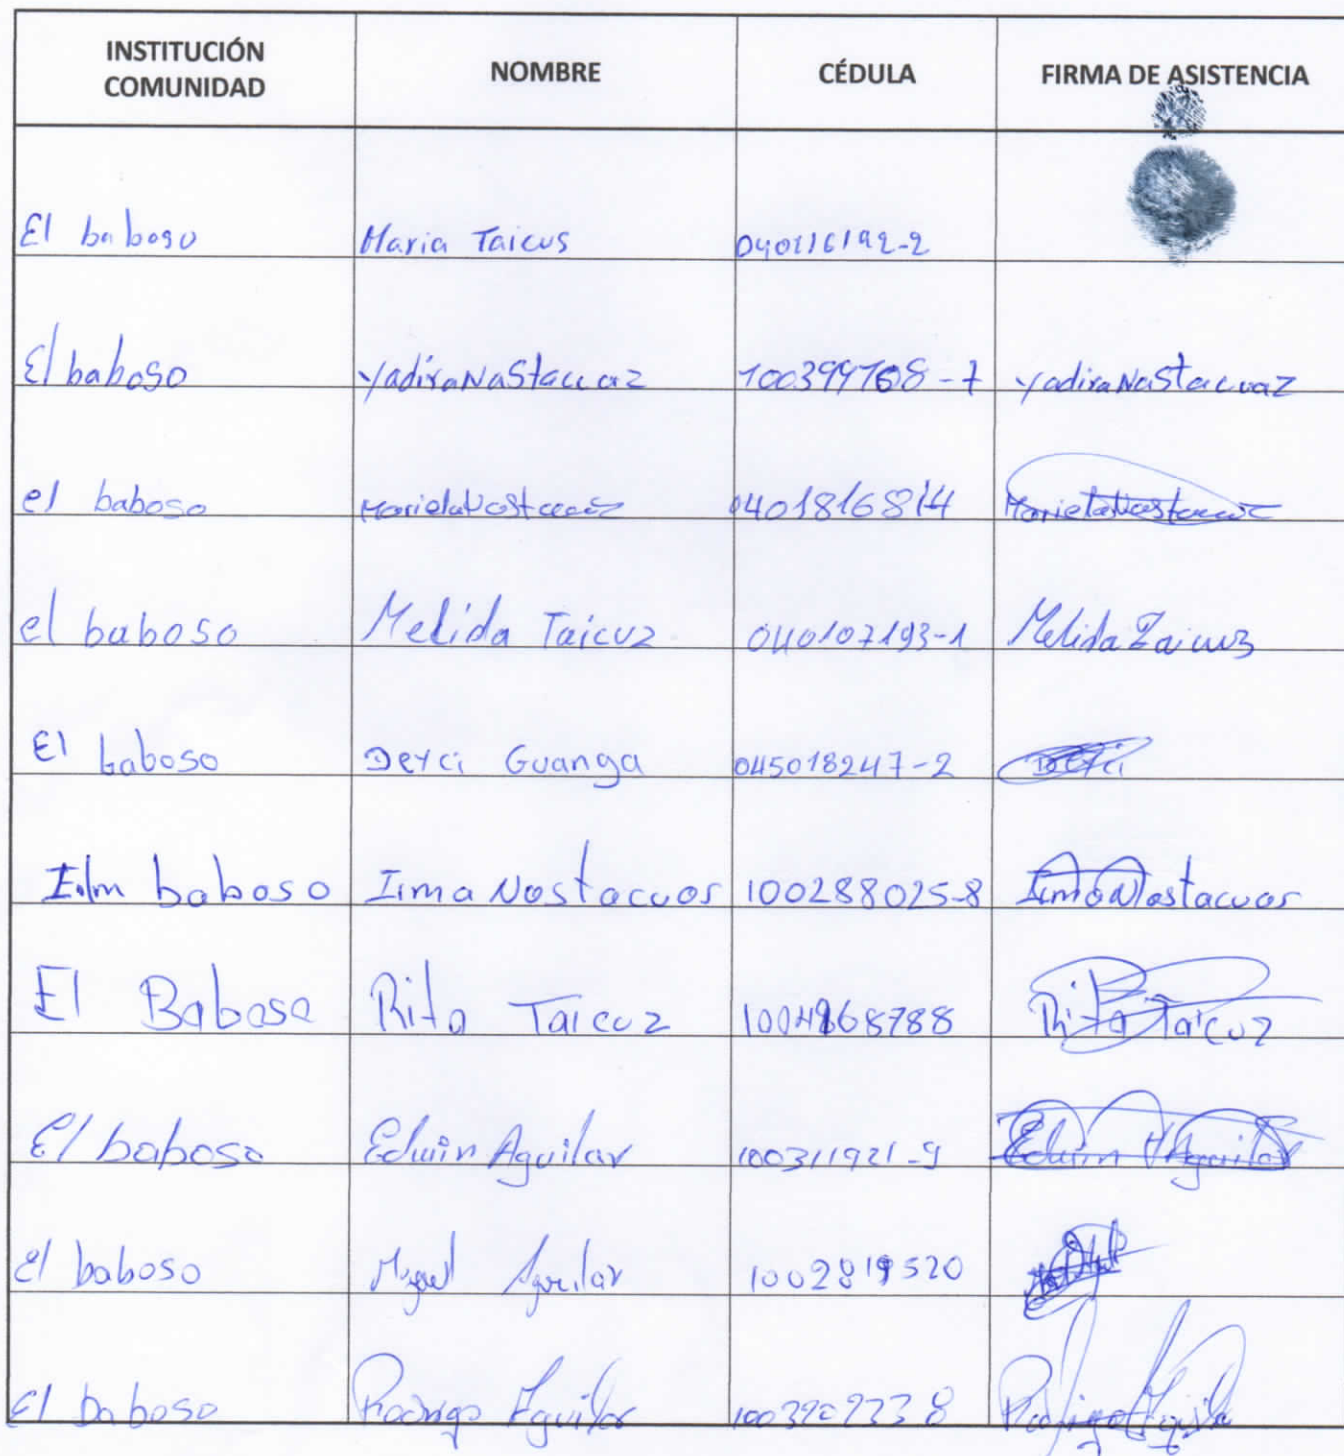 INSTITUCIÓN COMUNIDAD NOMBRE CÉDULA FIRMA DE ASISTENCIA
El baboso Maria Taicus 040116192-2
El baboso YadiraNaStacuaz 100399768-7 YadiraNaStacuaZ
el baboso 0401816814
el baboso Melida Taicuz 040107193-1 Melida Taicuz
El baboso Deyci Guanga 045018247-2 Deyci
baboso Irma Nastacuas 100288025-8 Irma Nastacuas
El Baboso Rita Taicuz Rita Taicuz
El baboso Edwin Aguilar 100311921-9 Edwin Aguilar
el baboso Miguel Aguilar 1002819520
El baboso Rodrigo Aguilar Rodrigo Aguilar